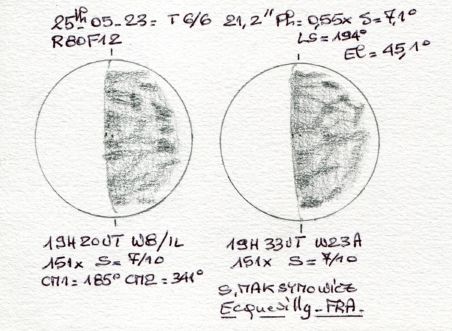 25th 05-23= T 6/6 21,2" Ph= 0,55x S=7,1°
R80F12
LS=194°
El=45,1°
19H20UT W8/IL
151x S=7/10
CM1=185° CM2=341°
19H33UT W23A
151x S=7/10
S.MAKSYMOWICZ
Ecquevilly-FRA.